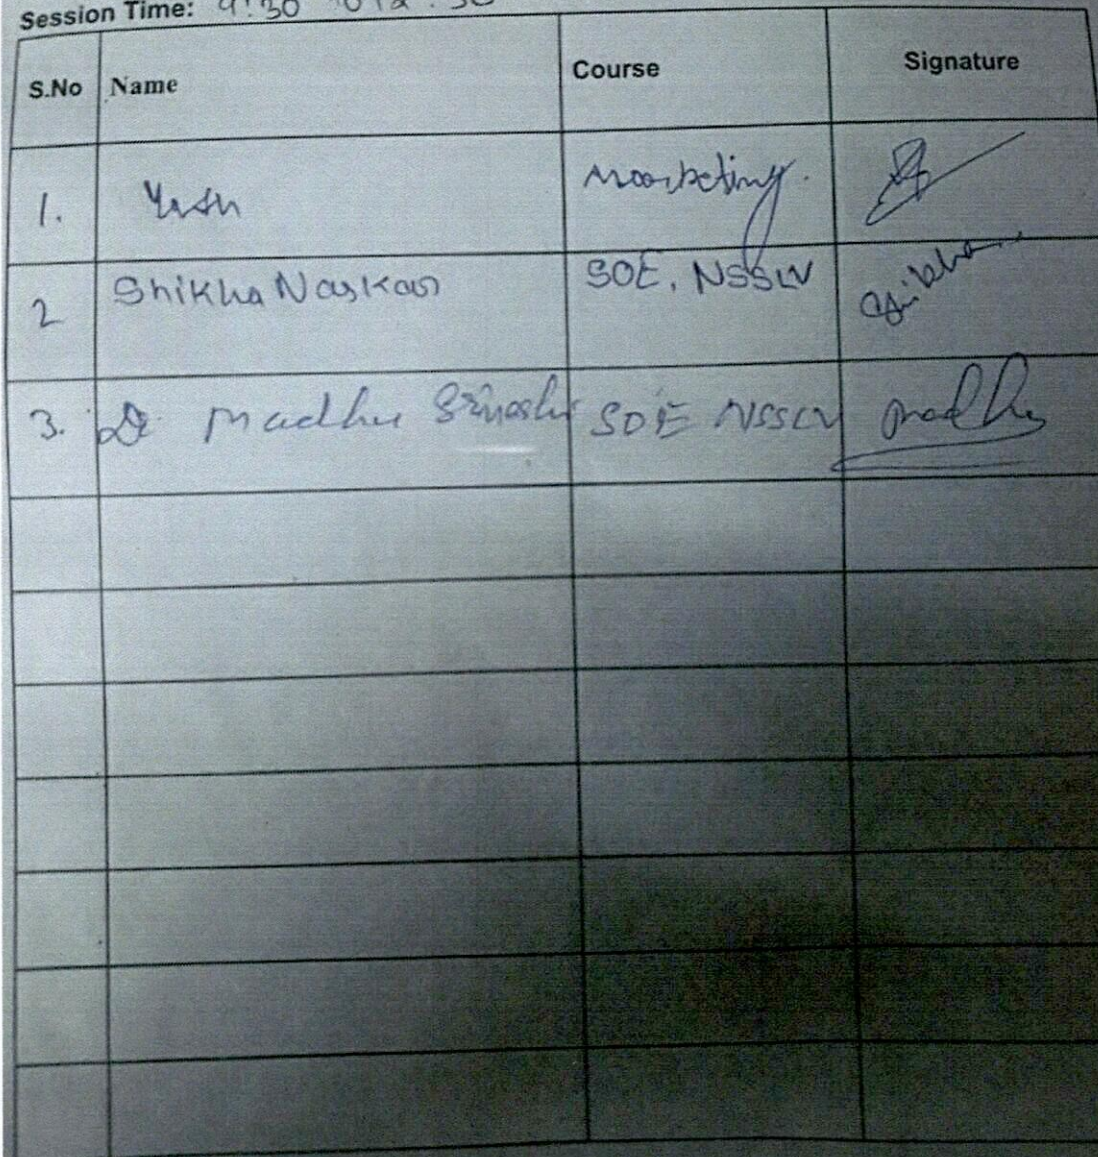 Session Time: 9:30
S.No Name Course Signature
1. Yash Marketing.
2 Shikha Naskar SOE, NSSLV Shikha
3. Dr Madhu SOE NSSLV Madhu